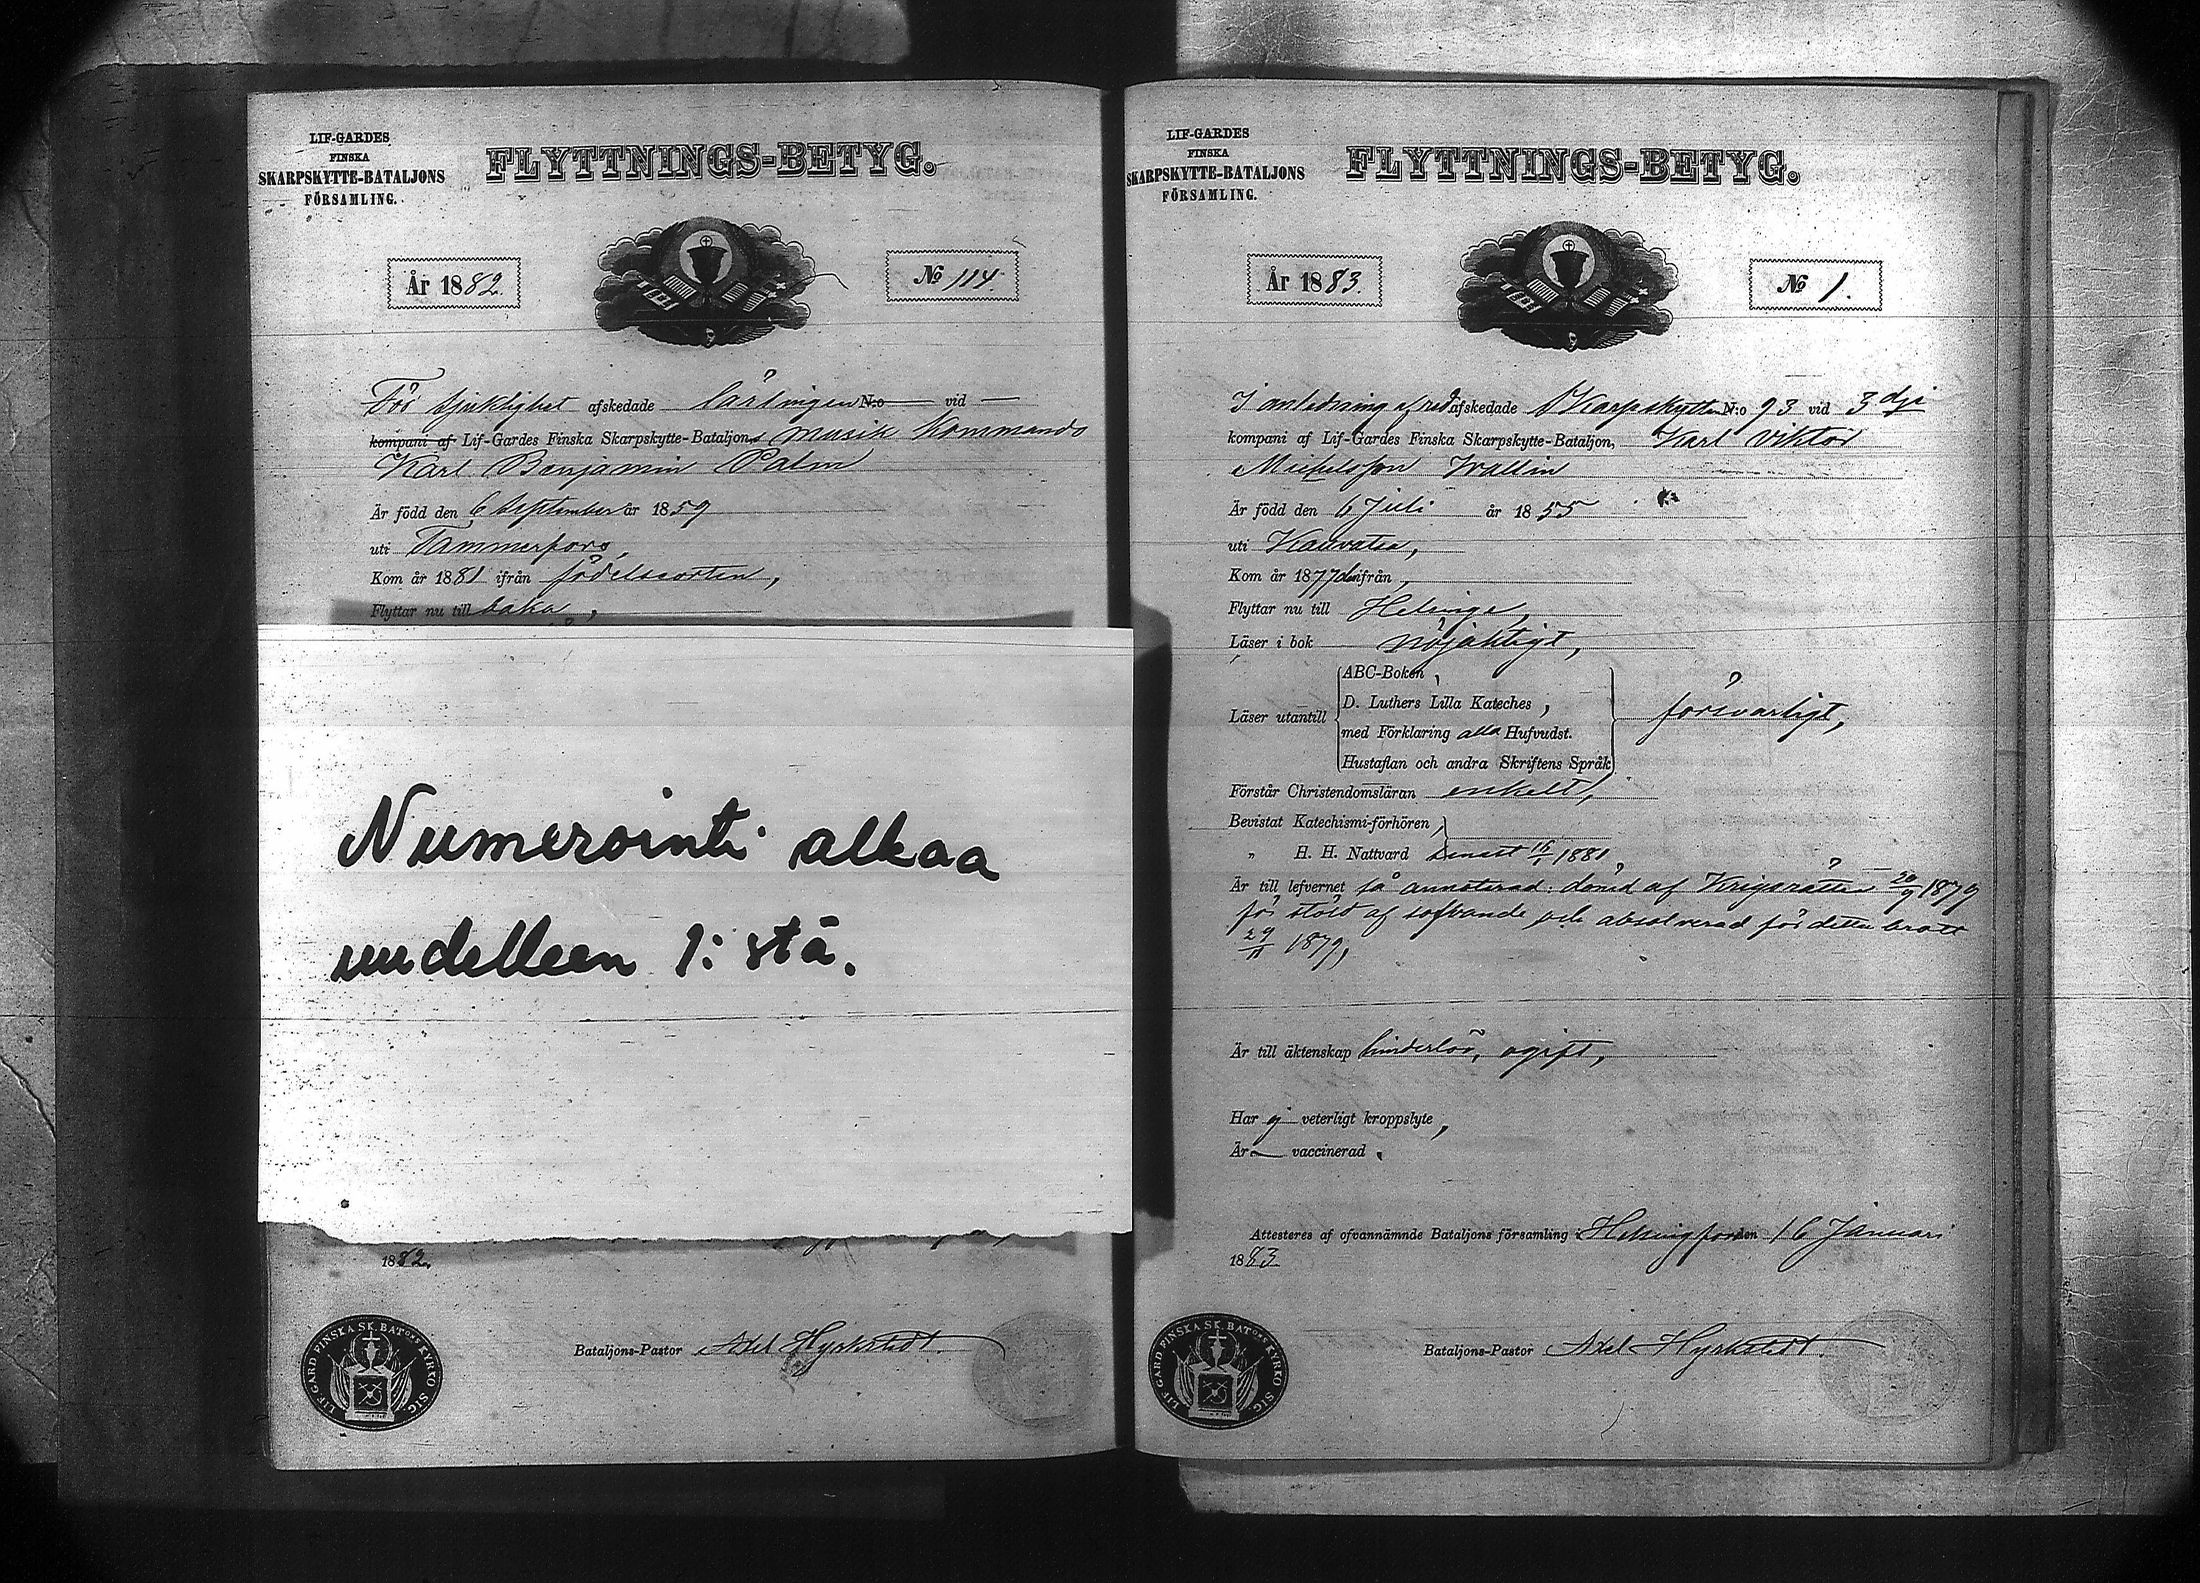 LIF-GARDES
FINSKA
SKARPSKYTTE-BATALJONS
FÖRSAMLING.
FLYTTNINGS-BETYG.
År 1882.
No 114.
För sjuklighet afskedade lärlingen N:o — vid —
kompani af Lif-Gardes Finska Skarpskytte-Bataljons Musik Kommando
Karl Benjamin Palm
Är född den 6 September år 1859
uti Tammerfors,
Kom år 1881 ifrån födelseorten,
Flyttar nu till baka,
Numerointi alkaa
uudelleen 1:stä.
1882.
LIF. GARD FINSKA SK. BATONS KYRKO SIG.
Bataljons-Pastor Axel Hyrkstedt.
LIF-GARDES
FINSKA
SKARPSKYTTE-BATALJONS
FÖRSAMLING.
FLYTTNINGS-BETYG.
År 1883.
No 1.
I anledning af afskedade Skarpskytten N:o 93 vid 3dje
kompani af Lif-Gardes Finska Skarpskytte-Bataljon, Karl Viktor
Michelsson Wallin
Är född den 6 Juli år 1855
uti Kauvatsa,
Kom år 1877 ifrån,
Flyttar nu till Helsinge,
Läser i bok nöjaktigt,
ABC-Boken,
D. Luthers Lilla Kateches,
Läser utantill försvarligt,
med Förklaring alla Hufvudst.
Hustaflan och andra Skriftens Språk
Förstår Christendomsläran enkelt,
Bevistat Katechismi-förhören,
„ H. H. Nattvard senast 1881,
Är till lefvernet så annoterad: dömd af Krigsrätten 20/9 1879
för stöld af sofvande och absolverad för detta brott
29/11 1879,
Är till äktenskap hinderlös, ogift,
Har ej veterligt kroppslyte,
Är — vaccinerad.
Attesteres af ofvannämnde Bataljons församling i Helsingfors den 16 Januari
1883
LIF. GARD FINSKA SK. BATONS KYRKO SIG.
Bataljons-Pastor Axel Hyrkstedt.